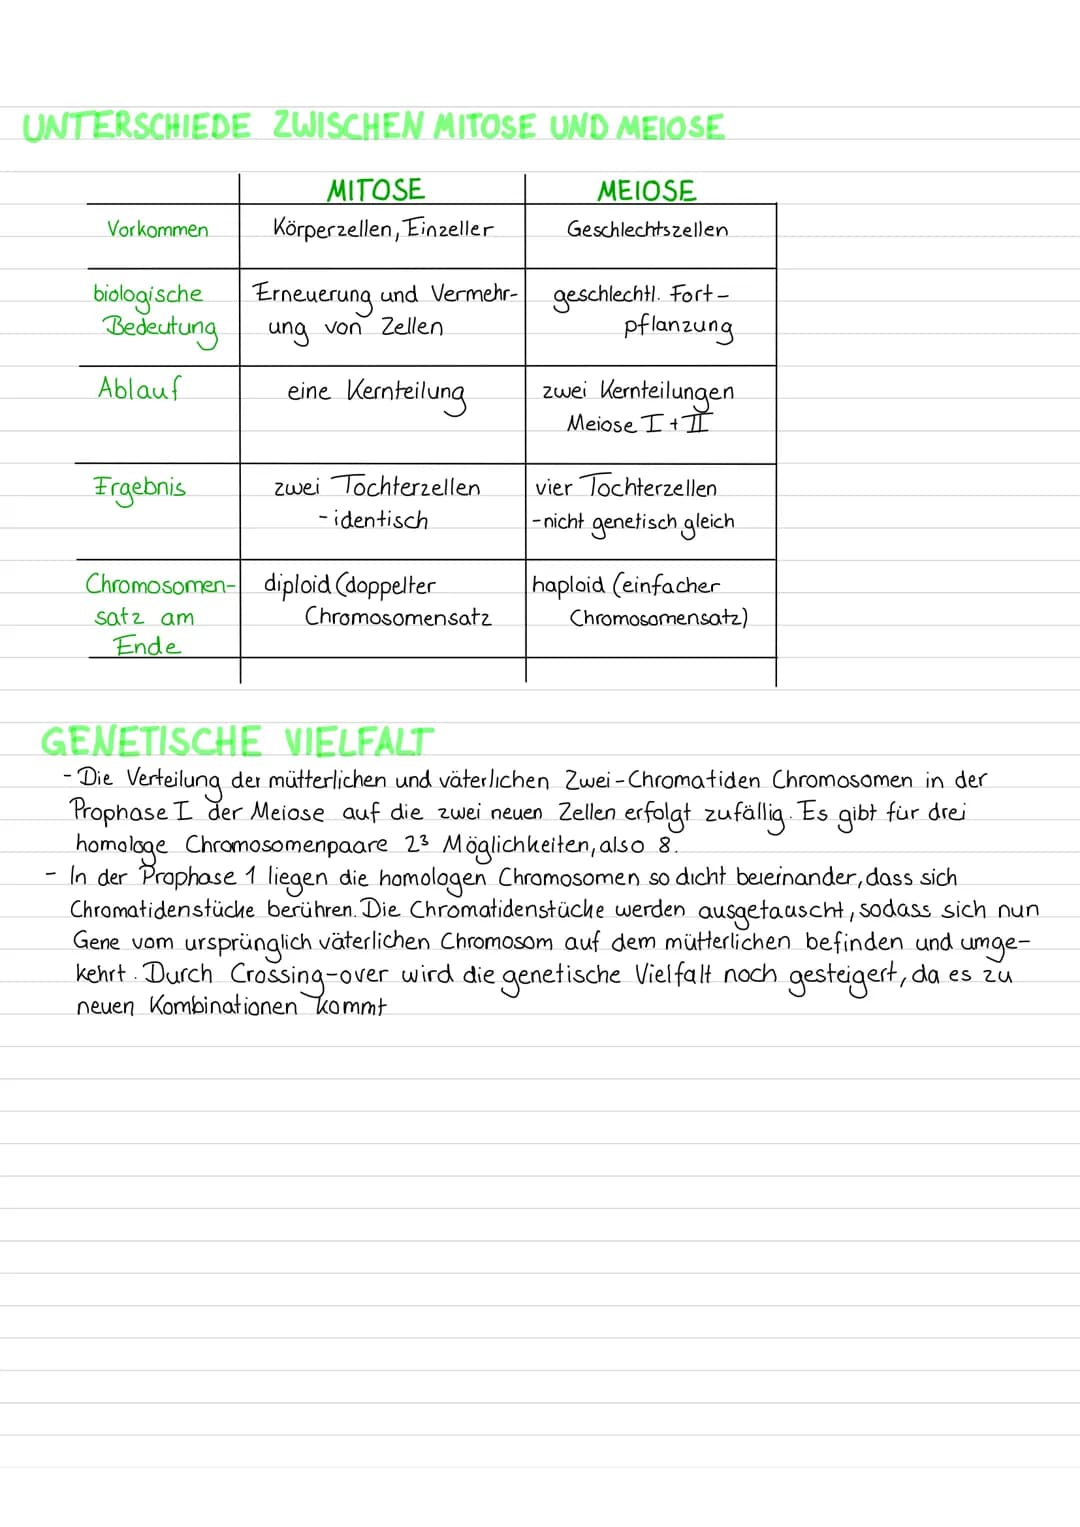 UNTERSCHIEDE ZWISCHEN MITOSE UND MEIOSE
MITOSE MEIOSE
Vorkommen Körperzellen, Einzeller Geschlechtszellen
biologische Erneuerung und Vermehr- geschlechtl. Fort-
Bedeutung ung von Zellen pflanzung
Ablauf eine Kernteilung zwei Kernteilungen
Meiose I + II
Ergebnis zwei Tochterzellen vier Tochterzellen
- identisch - nicht genetisch gleich
Chromosomen- diploid (doppelter haploid (einfacher
satz am Chromosomensatz Chromosomensatz)
Ende
GENETISCHE VIELFALT
- Die Verteilung der mütterlichen und väterlichen Zwei-Chromatiden Chromosomen in der
Prophase I der Meiose auf die zwei neuen Zellen erfolgt zufällig. Es gibt für drei
homologe Chromosomenpaare 2³ Möglichkeiten, also 8.
- In der Prophase 1 liegen die homologen Chromosomen so dicht beieinander, dass sich
Chromatidenstücke berühren. Die Chromatidenstücke werden ausgetauscht, sodass sich nun
Gene vom ursprünglich väterlichen Chromosom auf dem mütterlichen befinden und umge-
kehrt. Durch Crossing-over wird die genetische Vielfalt noch gesteigert, da es zu
neuen Kombinationen kommt